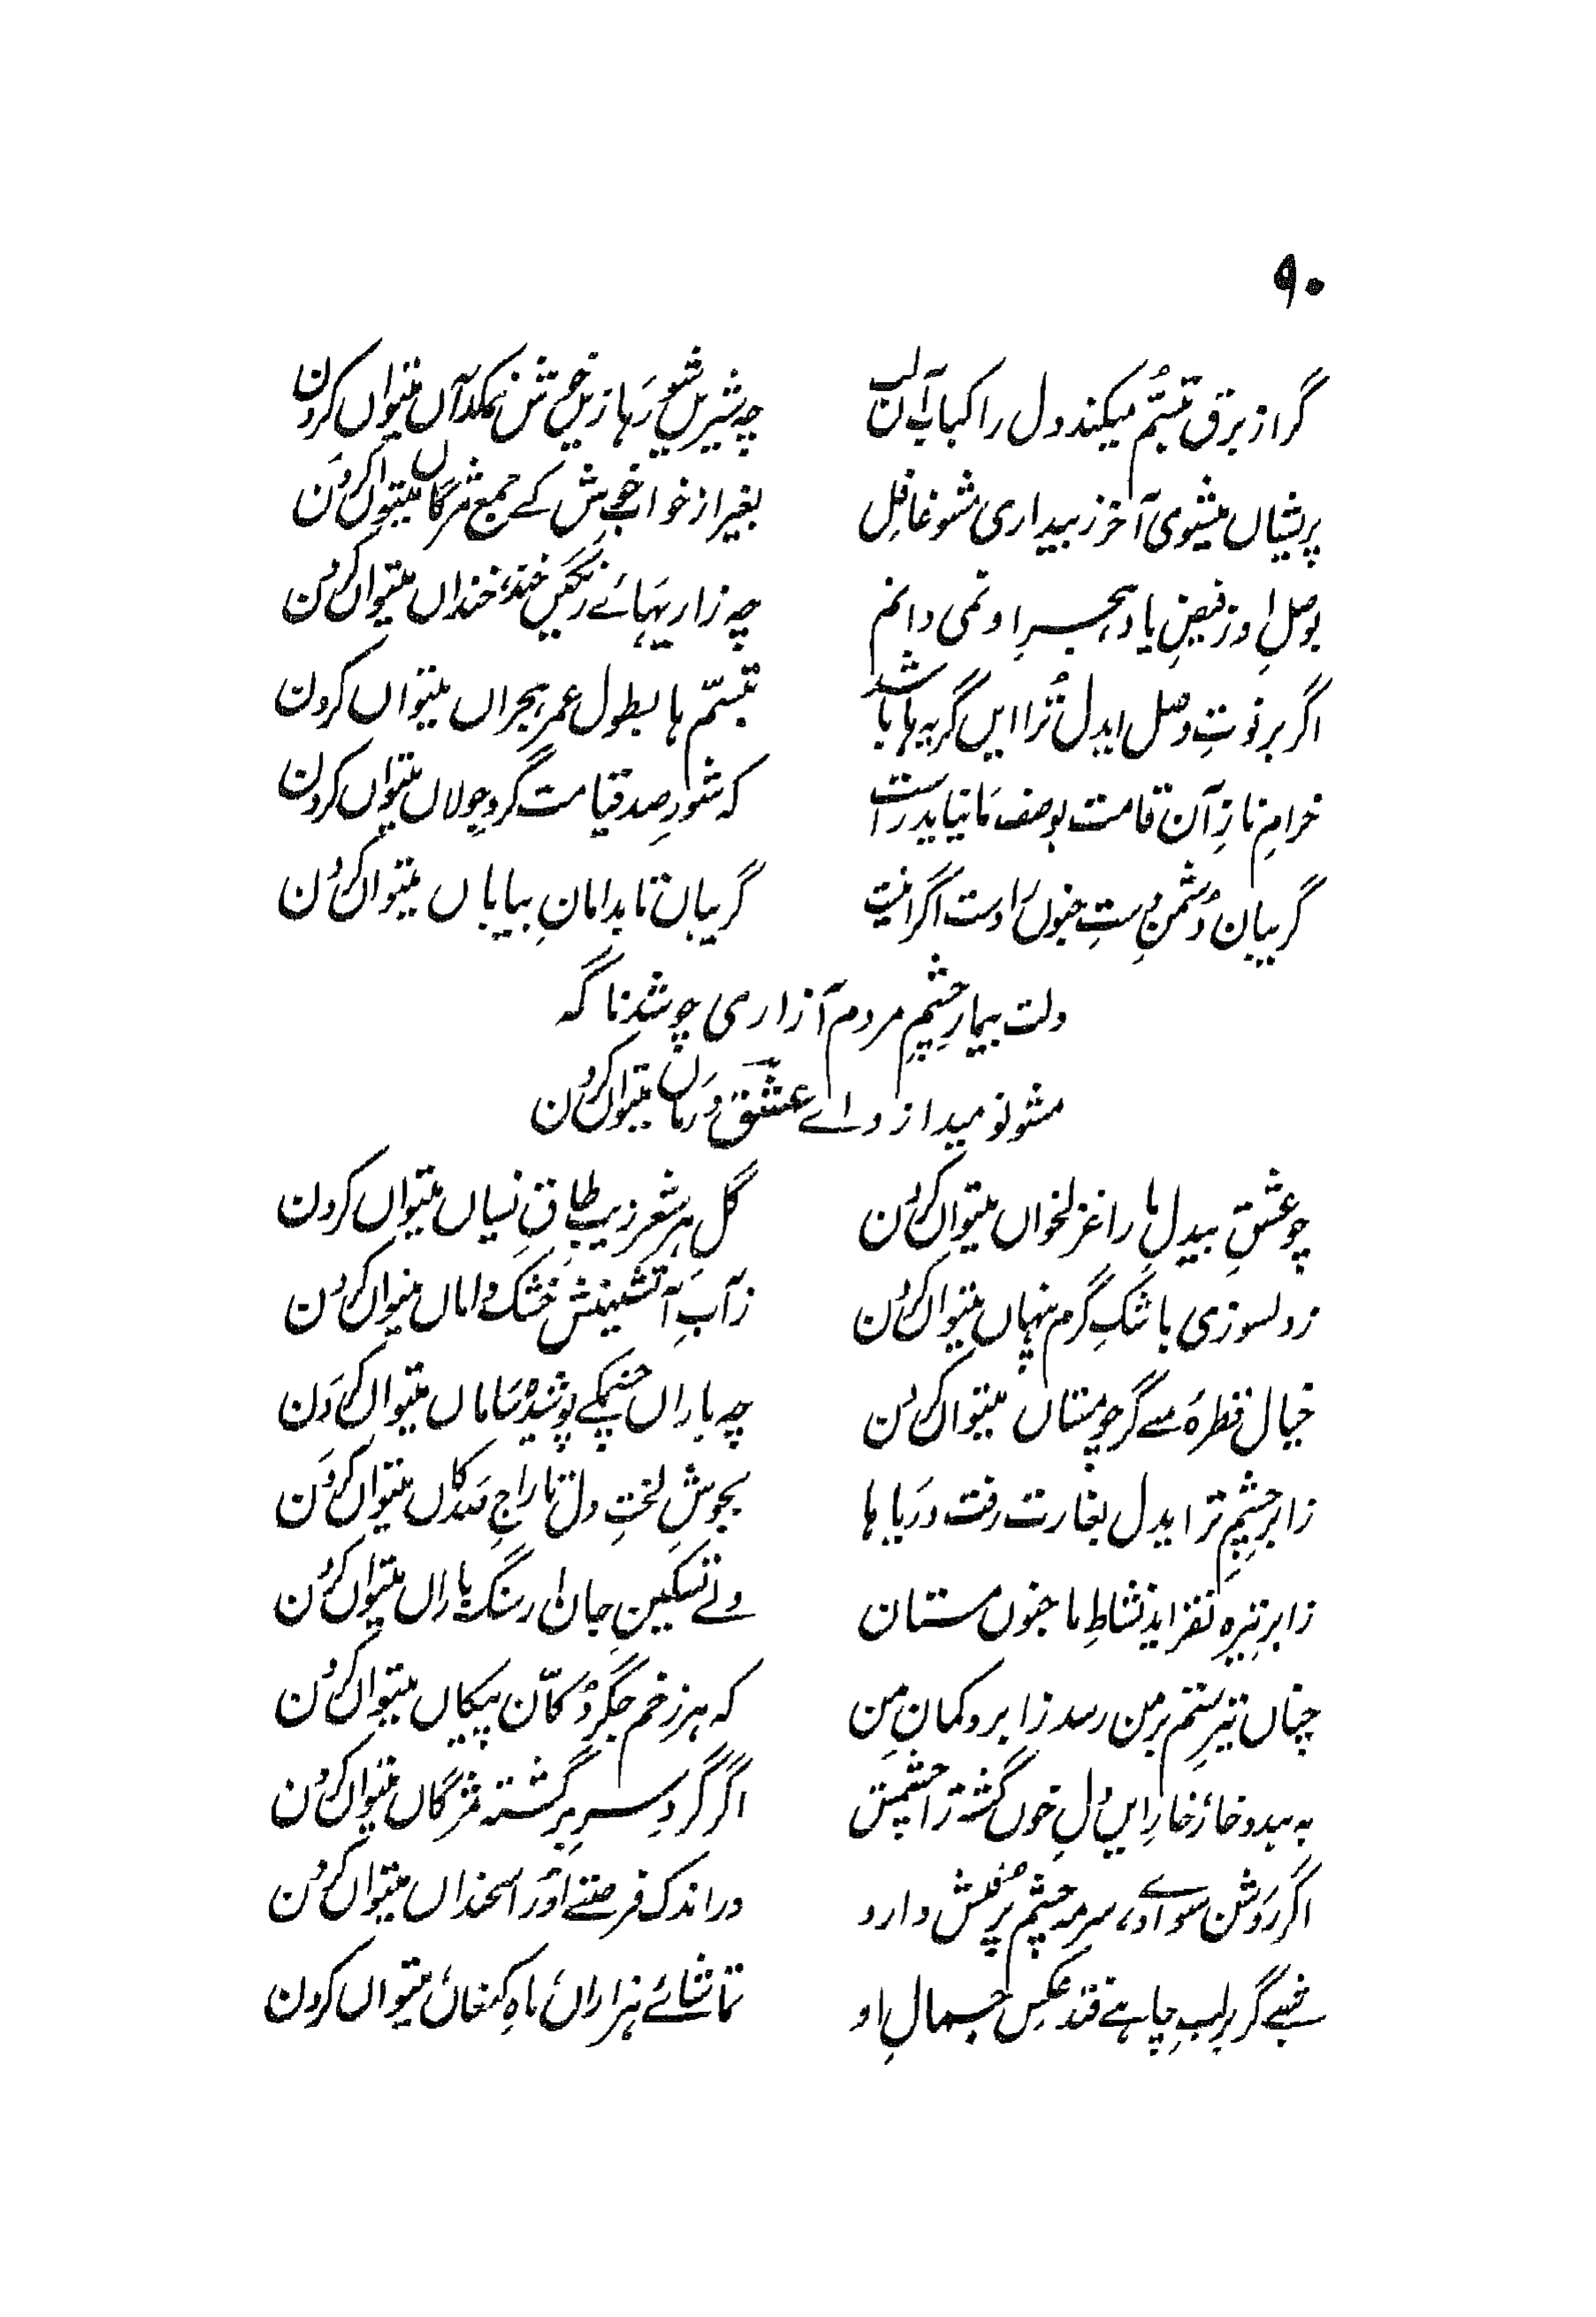 ۹۰
گر از برق تبسّم میکند دل را کباب آن لب
چہ شیریں شورہا زیں خوش نمکداں میتواں کردن
پریشاں میشوی آخر ز بیداری مشو غافل
بغیر از خواب خوش کے جمع مژگاں میتواں کردن
بوصلِ او ز فیضِ یادِ ہجرِ او نمی دانم
چہ زاریہائے رنگیں خندہ خنداں میتواں کردن
اگر بر قوتِ وصل ایدل ترا ایں گریہ ہا باشد
تبسّم ہا بطول عمرِ ہجراں میتواں کردن
خرامِ نازِ آن قامت بوصف مَا نیاید راست
کہ شورِ صد قیامت گردِ جولاں میتواں کردن
گریبان دشمنِ دستِ جنوں را وسعت اگر اینست
گریباں تا بدامانِ بیاباں میتواں کردن
دلت بیمارِ چشمِ مردم آزاری چو شد ناگہ
مشو نومید از دوائے عشق درماں میتواں کردن
چو عشقِ بیدلِ ما را غزلخواں میتواں کردن
گلِ ہر شعر زیبِ طاقِ نسیاں میتواں کردن
ز دلسوزی باشکِ گرم پنہاں میتواں کردن
ز آبِ آتشینش خشک داماں میتواں کردن
خیال قطرۂ مے گر چو مستاں میتواں کردن
چہ باراں چشمکے پوشیدہ ساماں میتواں کردن
ز ابرِ چشمِ تر ایدل بغارت رفت دریا ہا
بجوشِ لختِ دل تاراجِ صد کاں میتواں کردن
ز ابرِ تیرہ نفزاید نشاطِ ما جنوں مستان
ولے تسکینِ جاں از سنگ باراں میتواں کردن
چناں تیرِ ستم بر من رسد ز ابرو کمانِ من
کہ ہر زخم جگر دکّانِ پیکاں میتواں کردن
بہ بیدرد خار خارِ ایں دلِ خوں گشتہ را چشمش
اگر گردِ سرِ برگشتہ مژگاں میتواں کردن
اگر روشن سوادے، سرمہ چشمِ پُر فنش دارد
در اندک فرصتے او را سخنداں میتواں کردن
شبے گر بر لبِ چاہے فتد عکسِ جمالِ او
تماشائے ہزاراں ماہِ کنعاں میتواں کردن